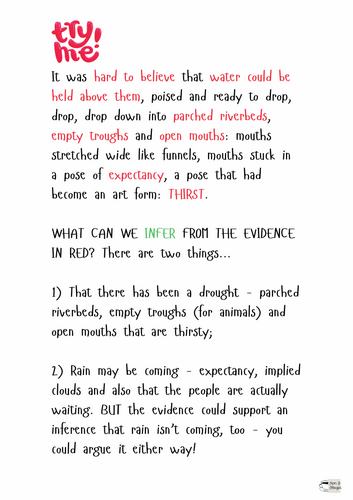 try
me!
It was hard to believe that water could be
held above them, poised and ready to drop,
drop, drop down into parched riverbeds,
empty troughs and open mouths: mouths
stretched wide like funnels, mouths stuck in
a pose of expectancy, a pose that had
become an art form: THIRST.
WHAT CAN WE INFER FROM THE EVIDENCE
IN RED? There are two things...
1) That there has been a drought - parched
riverbeds, empty troughs (for animals) and
open mouths that are thirsty;
2) Rain may be coming - expectancy, implied
clouds and also that the people are actually
waiting. BUT the evidence could support an
inference that rain isn't coming, too - you
could argue it either way!